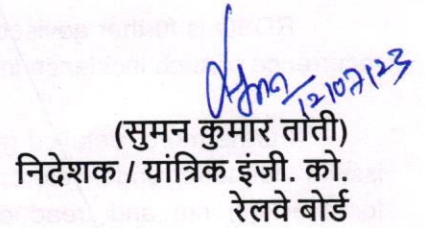 12/07/23
(सुमन कुमार तांती)
निदेशक / यांत्रिक इंजी. को.
रेलवे बोर्ड